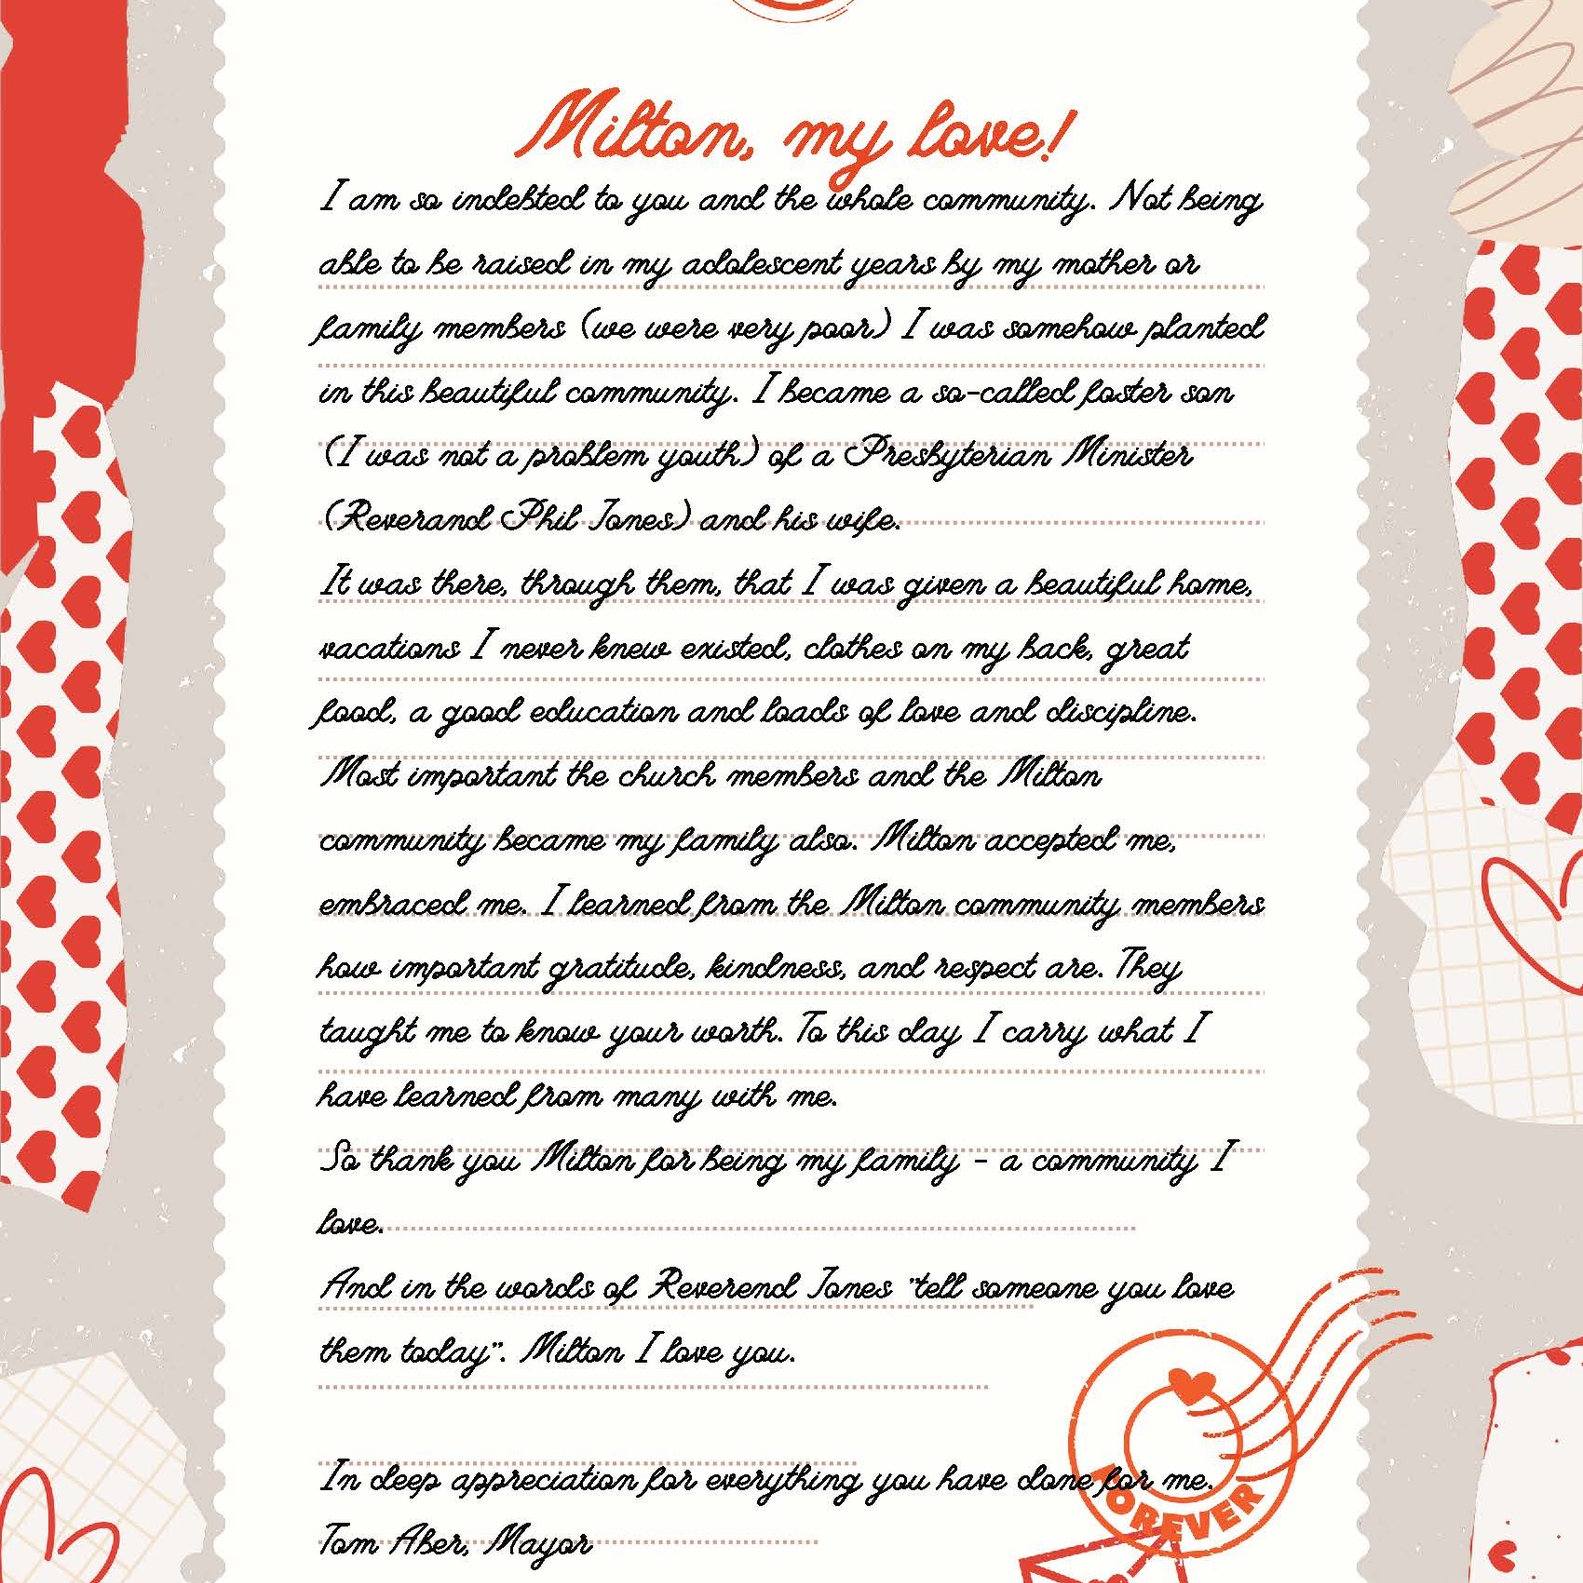 Milton, my love!
I am so indebted to you and the whole community. Not being
able to be raised in my adolescent years by my mother or
family members (we were very poor) I was somehow planted
in this beautiful community. I became a so-called foster son
(I was not a problem youth) of a Presbyterian Minister
(Reverand Phil Jones) and his wife.
It was there, through them, that I was given a beautiful home,
vacations I never knew existed, clothes on my back, great
food, a good education and loads of love and discipline.
Most important the church members and the Milton
community became my family also. Milton accepted me,
embraced me. I learned from the Milton community members
how important gratitude, kindness, and respect are. They
taught me to know your worth. To this day I carry what I
have learned from many with me.
So thank you Milton for being my family - a community I
love.
And in the words of Reverend Jones "tell someone you love
them today". Milton I love you.
In deep appreciation for everything you have done for me.
Tom Aber, Mayor
FOREVER